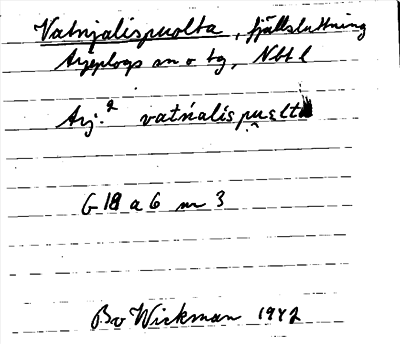 Vatnjalispuolta, fjällsluttning
Arjeplogs sn o tg, Nbtl
Arj.² vatńalis puɛlta
G 18 a 6 nr 3
Bo Wickman 1942